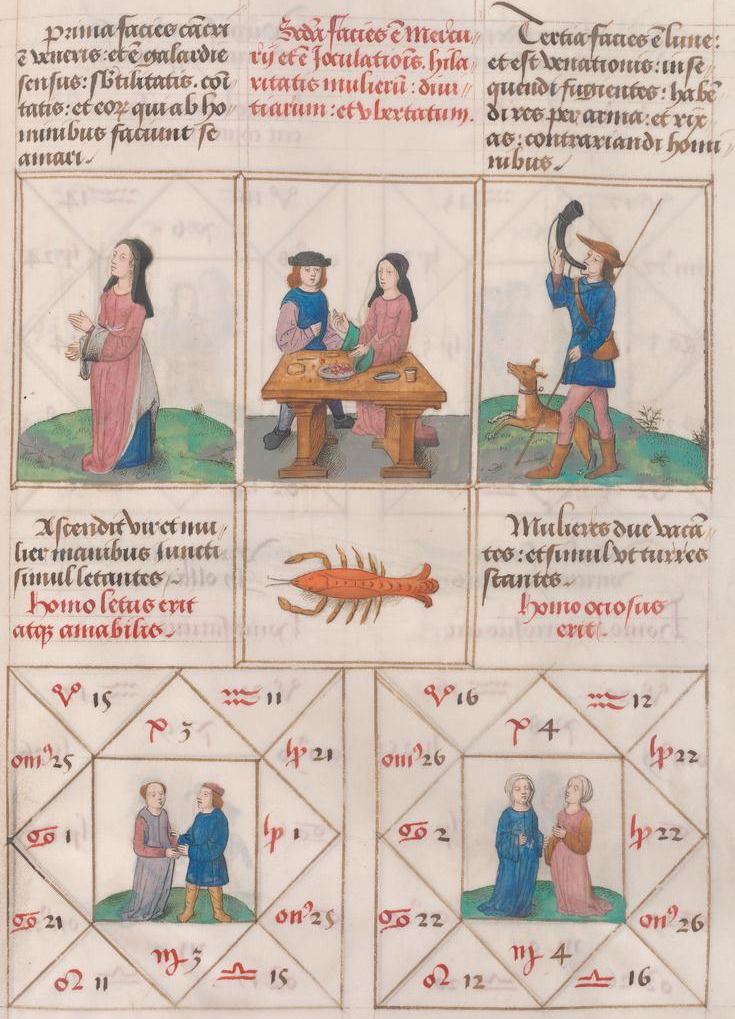 prima facies cācri
ē veneris: et ē galardie
sensus: sbtilitatis. coīī
tatis: et eoꝝ qui ab ho
minibus faciunt se
amari.
Scd̄a facies ē Mercu
rij et ē Joculatiōis. hila
ritatis mulierū: divi
tiarum: et vbertatum.
Tertia facies ē lune:
et est venationis: in se
quendi fugientes: habē
di res per arma: et rix
as: contrariandi homi
nibus.
Ascendit vir et mu
lier manibus iuncti
simul letantes.
Homo letus erit
atqꝫ amabilis.
Mulieres due vacā
tes: et simul vt turres
stantes.
Homo ociosus
erit.
♈ 15 ♒ 11
3
omꝰ 25 21
♋ 1 1
♋ 21 omꝰ 25
♍ 3
♌ 11 ♎ 15
♈ 16 ♒ 12
4
omꝰ 26 22
♋ 2 22
♋ 22 omꝰ 26
♍ 4
♌ 12 ♎ 16